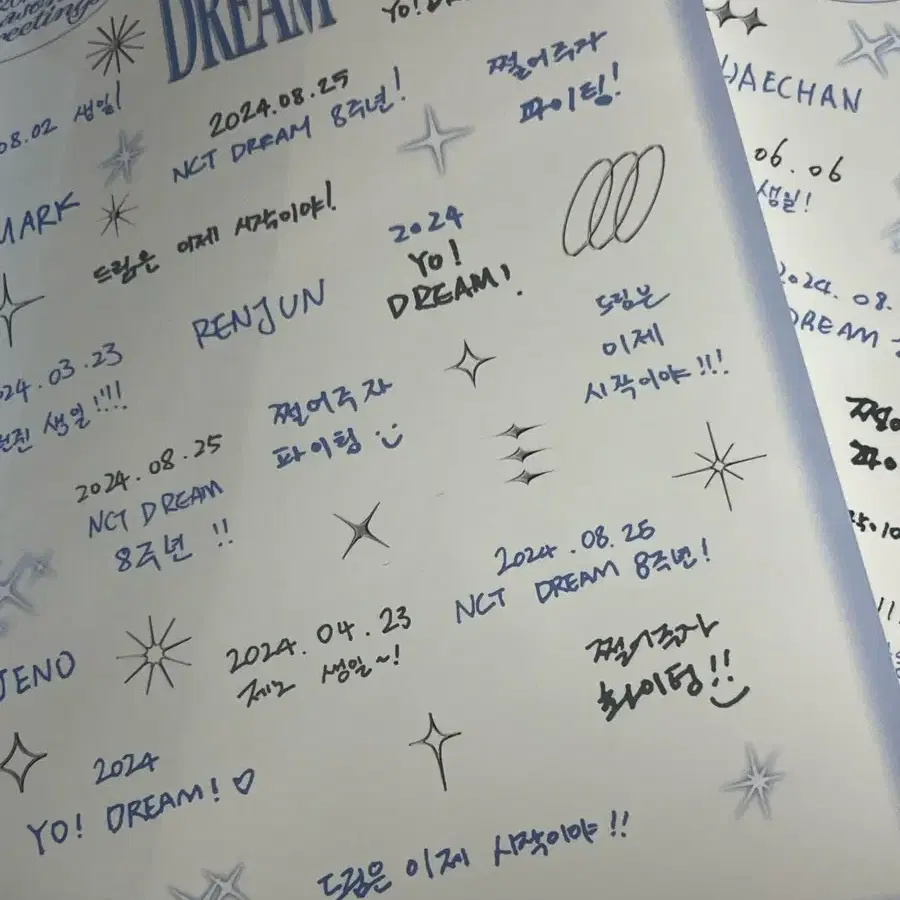 DREAM
08.02 생일!
2024.08.25
NCT DREAM 8주년!
쩔어주자
파이팅!
MARK
드림은 이제 시작이야!
2024
YO!
DREAM!
RENJUN
드림은
이제
시작이야!!!
2024.03.23
런쥔 생일!!!
쩔어주자
파이팅
2024.08.25
NCT DREAM
8주년 !!
2024.08.25
NCT DREAM 8주년!
JENO
2024.04.23
제노 생일~!
쩔어주자
화이팅!!
2024
YO! DREAM!♡
드림은 이제 시작이야!!
HAECHAN
06.06
생일!
2024.08.
DREAM